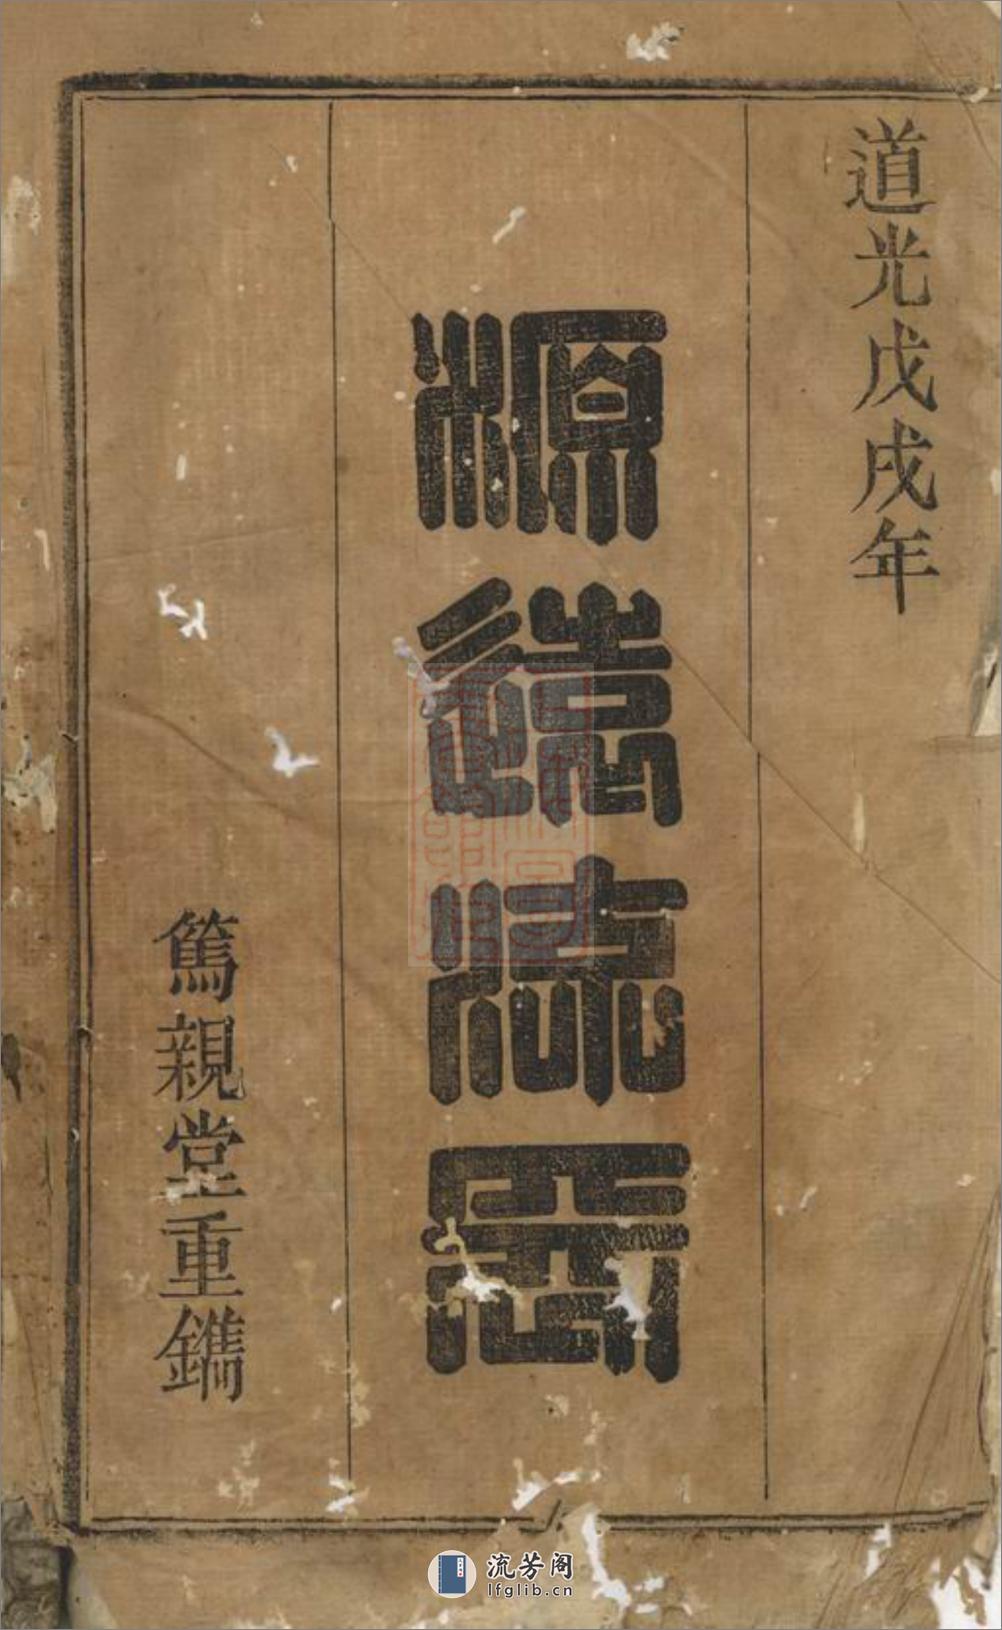 道光戊戌年
源遠流長
篤親堂重鐫
流芳阁
lfglib.cn